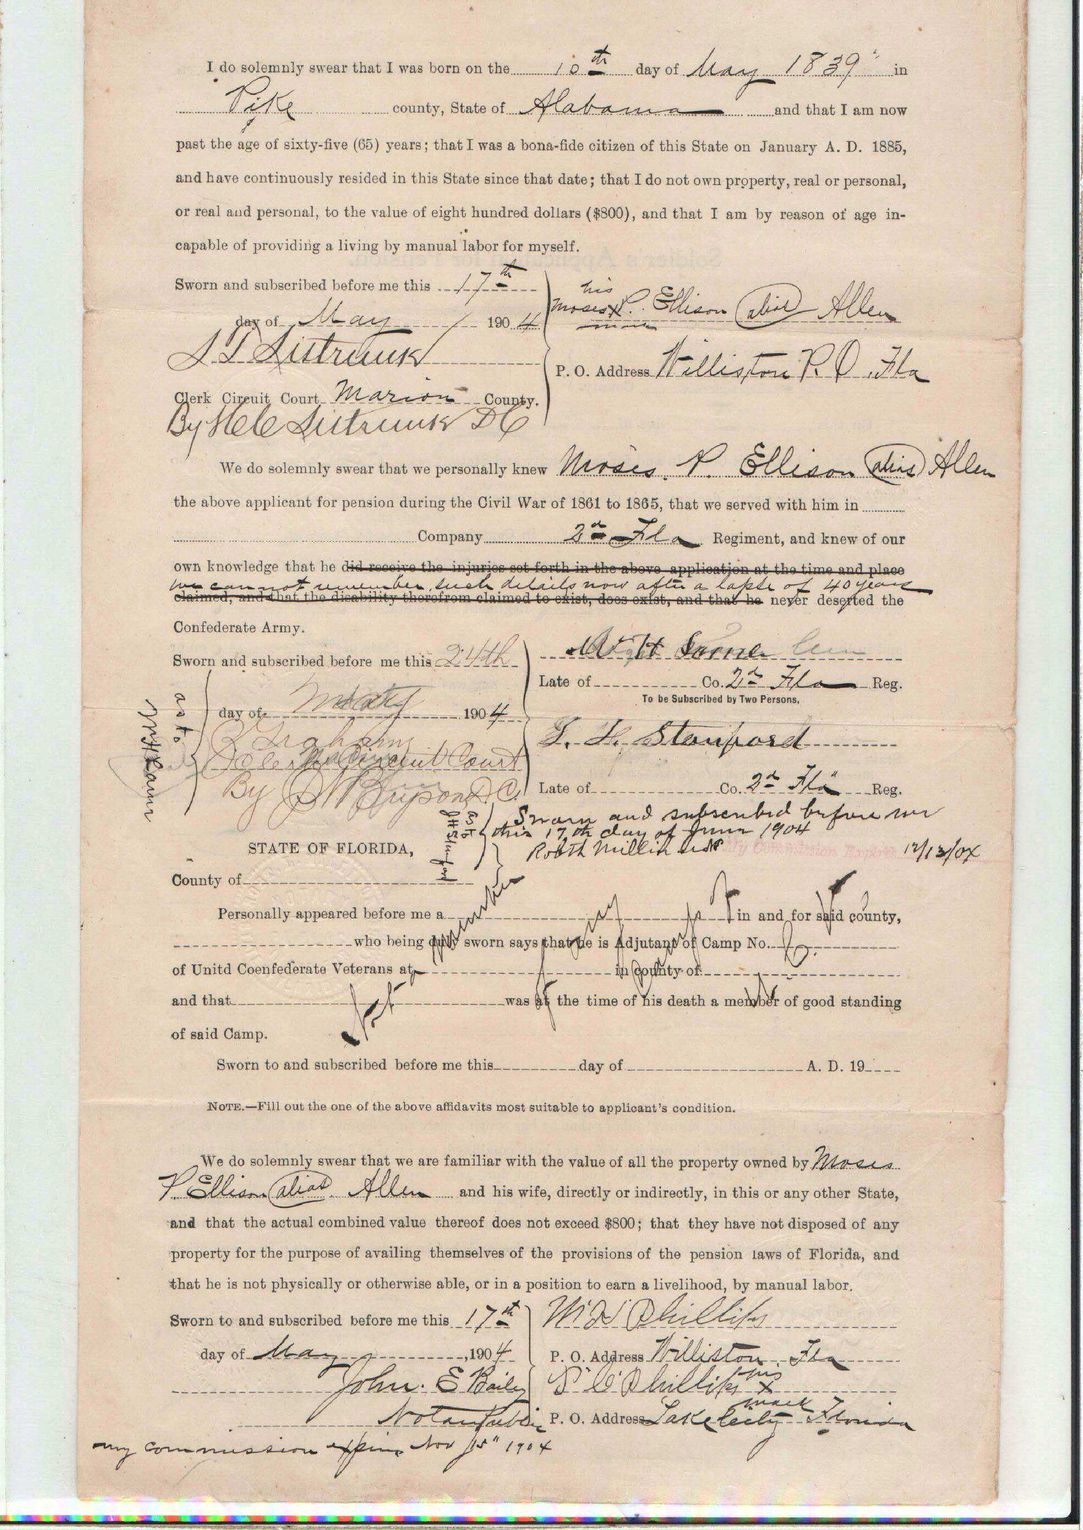 I do solemnly swear that I was born on the 10th day of May 1839 in
Pike county, State of Alabama and that I am now
past the age of sixty-five (65) years; that I was a bona-fide citizen of this State on January A. D. 1885,
and have continuously resided in this State since that date; that I do not own property, real or personal,
or real and personal, to the value of eight hundred dollars ($800), and that I am by reason of age in-
capable of providing a living by manual labor for myself.
Sworn and subscribed before me this 17th
day of May 1904
S T Sistrunk
Clerk Circuit Court Marion County.
By H C Sistrunk DC
his
Moses X P. Ellison (alias) Allen
mark
P. O. Address Williston P. O. Fla
We do solemnly swear that we personally knew Moses P. Ellison (alias) Allen
the above applicant for pension during the Civil War of 1861 to 1865, that we served with him in
Company 2d Fla Regiment, and knew of our
own knowledge that he did receive the injuries set forth in the above application at the time and place
we cannot remember such details now after a lapse of 40 years
claimed, and that the disability therefrom claimed to exist, does exist, and that he never deserted the
Confederate Army.
Sworn and subscribed before me this 24th
day of May 1904
Circuit Court
By D.C.
as to
Late of Co. 2d Fla Reg.
To be Subscribed by Two Persons,
L. H. Stanford
Late of Co. 2d Fla Reg.
as to
Sworn and subscribed before me
this 17th day of June 1904
My Commission Expires 12/13/04
STATE OF FLORIDA,
County of
Personally appeared before me a in and for said county,
who being duly sworn says that he is Adjutant of Camp No.
of Unitd Coenfederate Veterans at in county of
and that was at the time of his death a member of good standing
of said Camp.
Not
member
Sworn to and subscribed before me this day of A. D. 19
NOTE.—Fill out the one of the above affidavits most suitable to applicant's condition.
We do solemnly swear that we are familiar with the value of all the property owned by Moses
P Ellison (alias) Allen and his wife, directly or indirectly, in this or any other State,
and that the actual combined value thereof does not exceed $800; that they have not disposed of any
property for the purpose of availing themselves of the provisions of the pension laws of Florida, and
that he is not physically or otherwise able, or in a position to earn a livelihood, by manual labor.
Sworn to and subscribed before me this 17th
day of May, 1904
John. E Baily
Notary Public
my commission expires Nov 15" 1904
W H Phillips
P. O. Address Williston, Fla
S C Phillips his X
mark
P. O. Address Lake City Florida